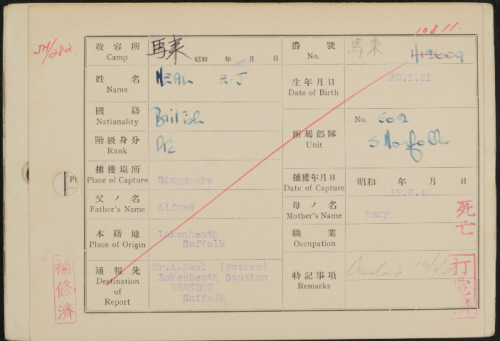 10811.
JH/282
收容所 Camp 馬来 昭和 年 月 日
番號 No. 馬来
姓名 Name NEAL
生年月日 Date of Birth 20.1.21
國籍 Nationality British
No.
階級身分 Rank Pte
所屬部隊 Unit 5 Norfolk
捕獲場所 Place of Capture Singapore
捕獲年月日 Date of Capture 昭和 年 月 日
15.2.4
父ノ名 Father's Name Alfred
母ノ名 Mother's Name Mary
本籍地 Place of Origin Lakenheath
Suffolk
職業 Occupation
通報先 Destination of Report Mr.A.Neal (Father)
Lakenheath Station
BRANDON
Suffolk
特記事項 Remarks
死亡
補修済